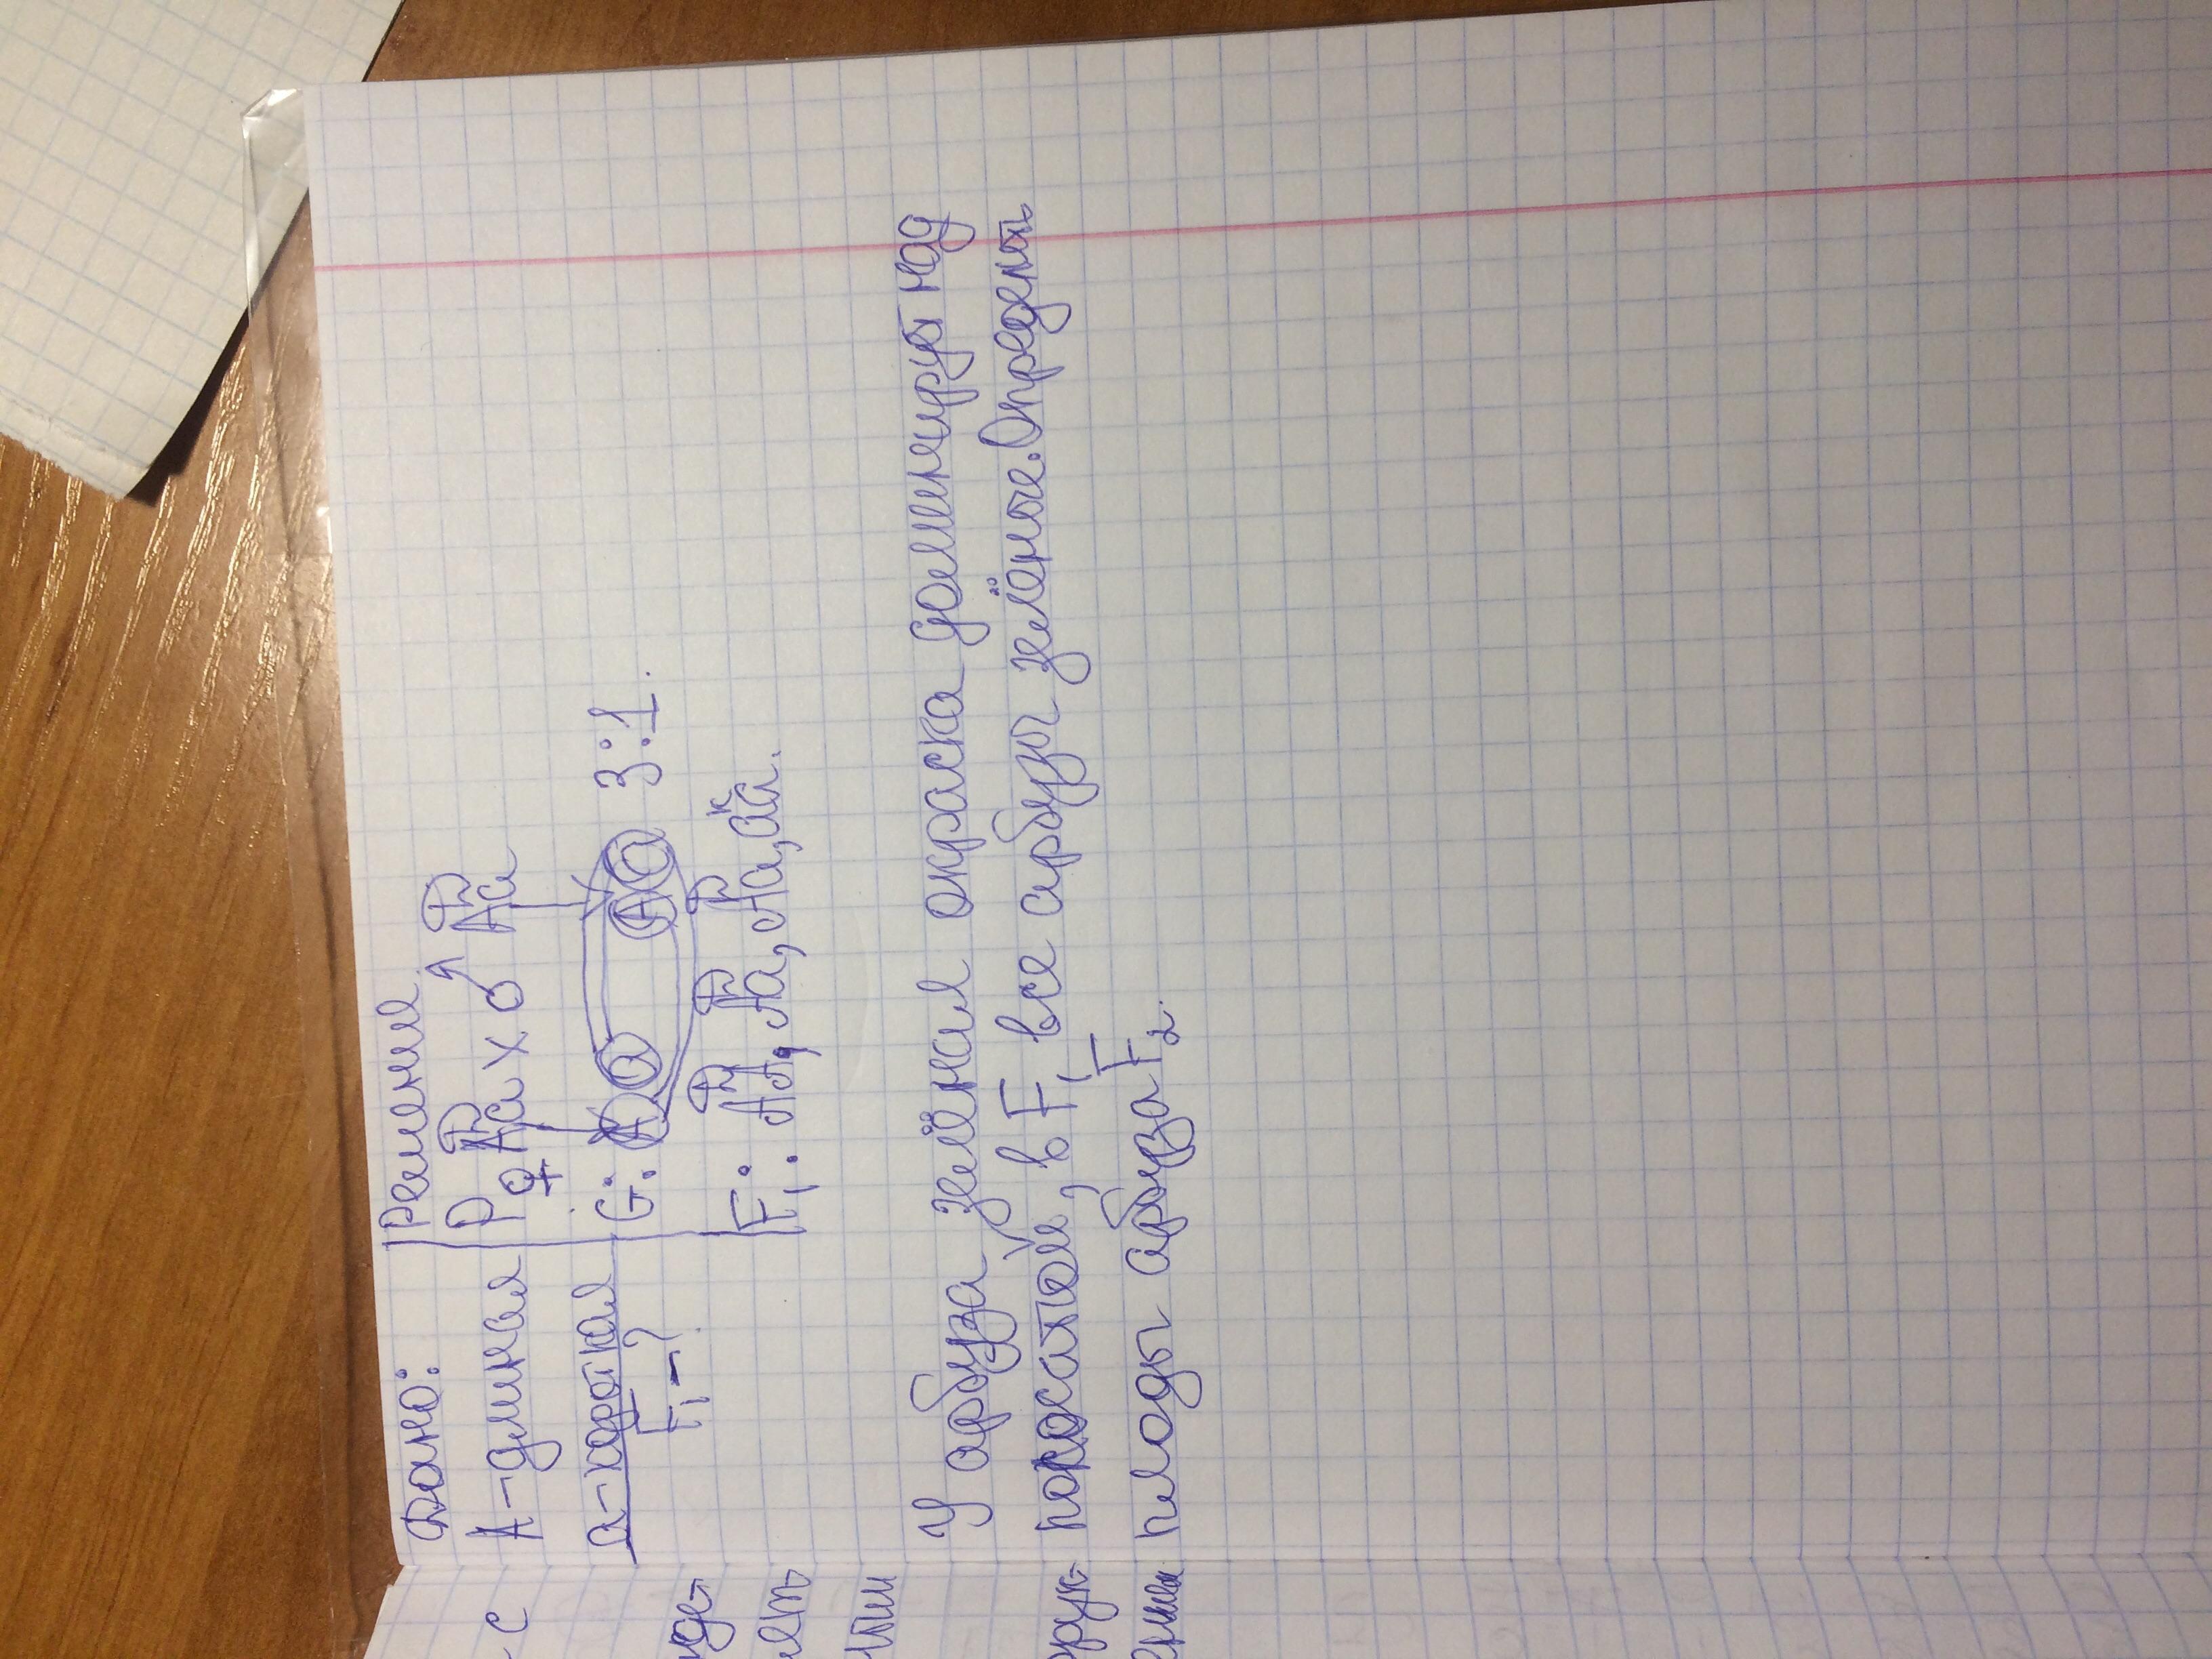 Дано:
А-длинная
а-короткая
F₁-?
Решение
P ♀ Аа х ♂ Аа
G: А а А а 3:1.
F₁: АА, Аа, Аа, аа.
У арбуза зелёная окраска доминирует над
полосатой, в F₁ все арбузы зелёные. Определить
плоды арбуза F₂.